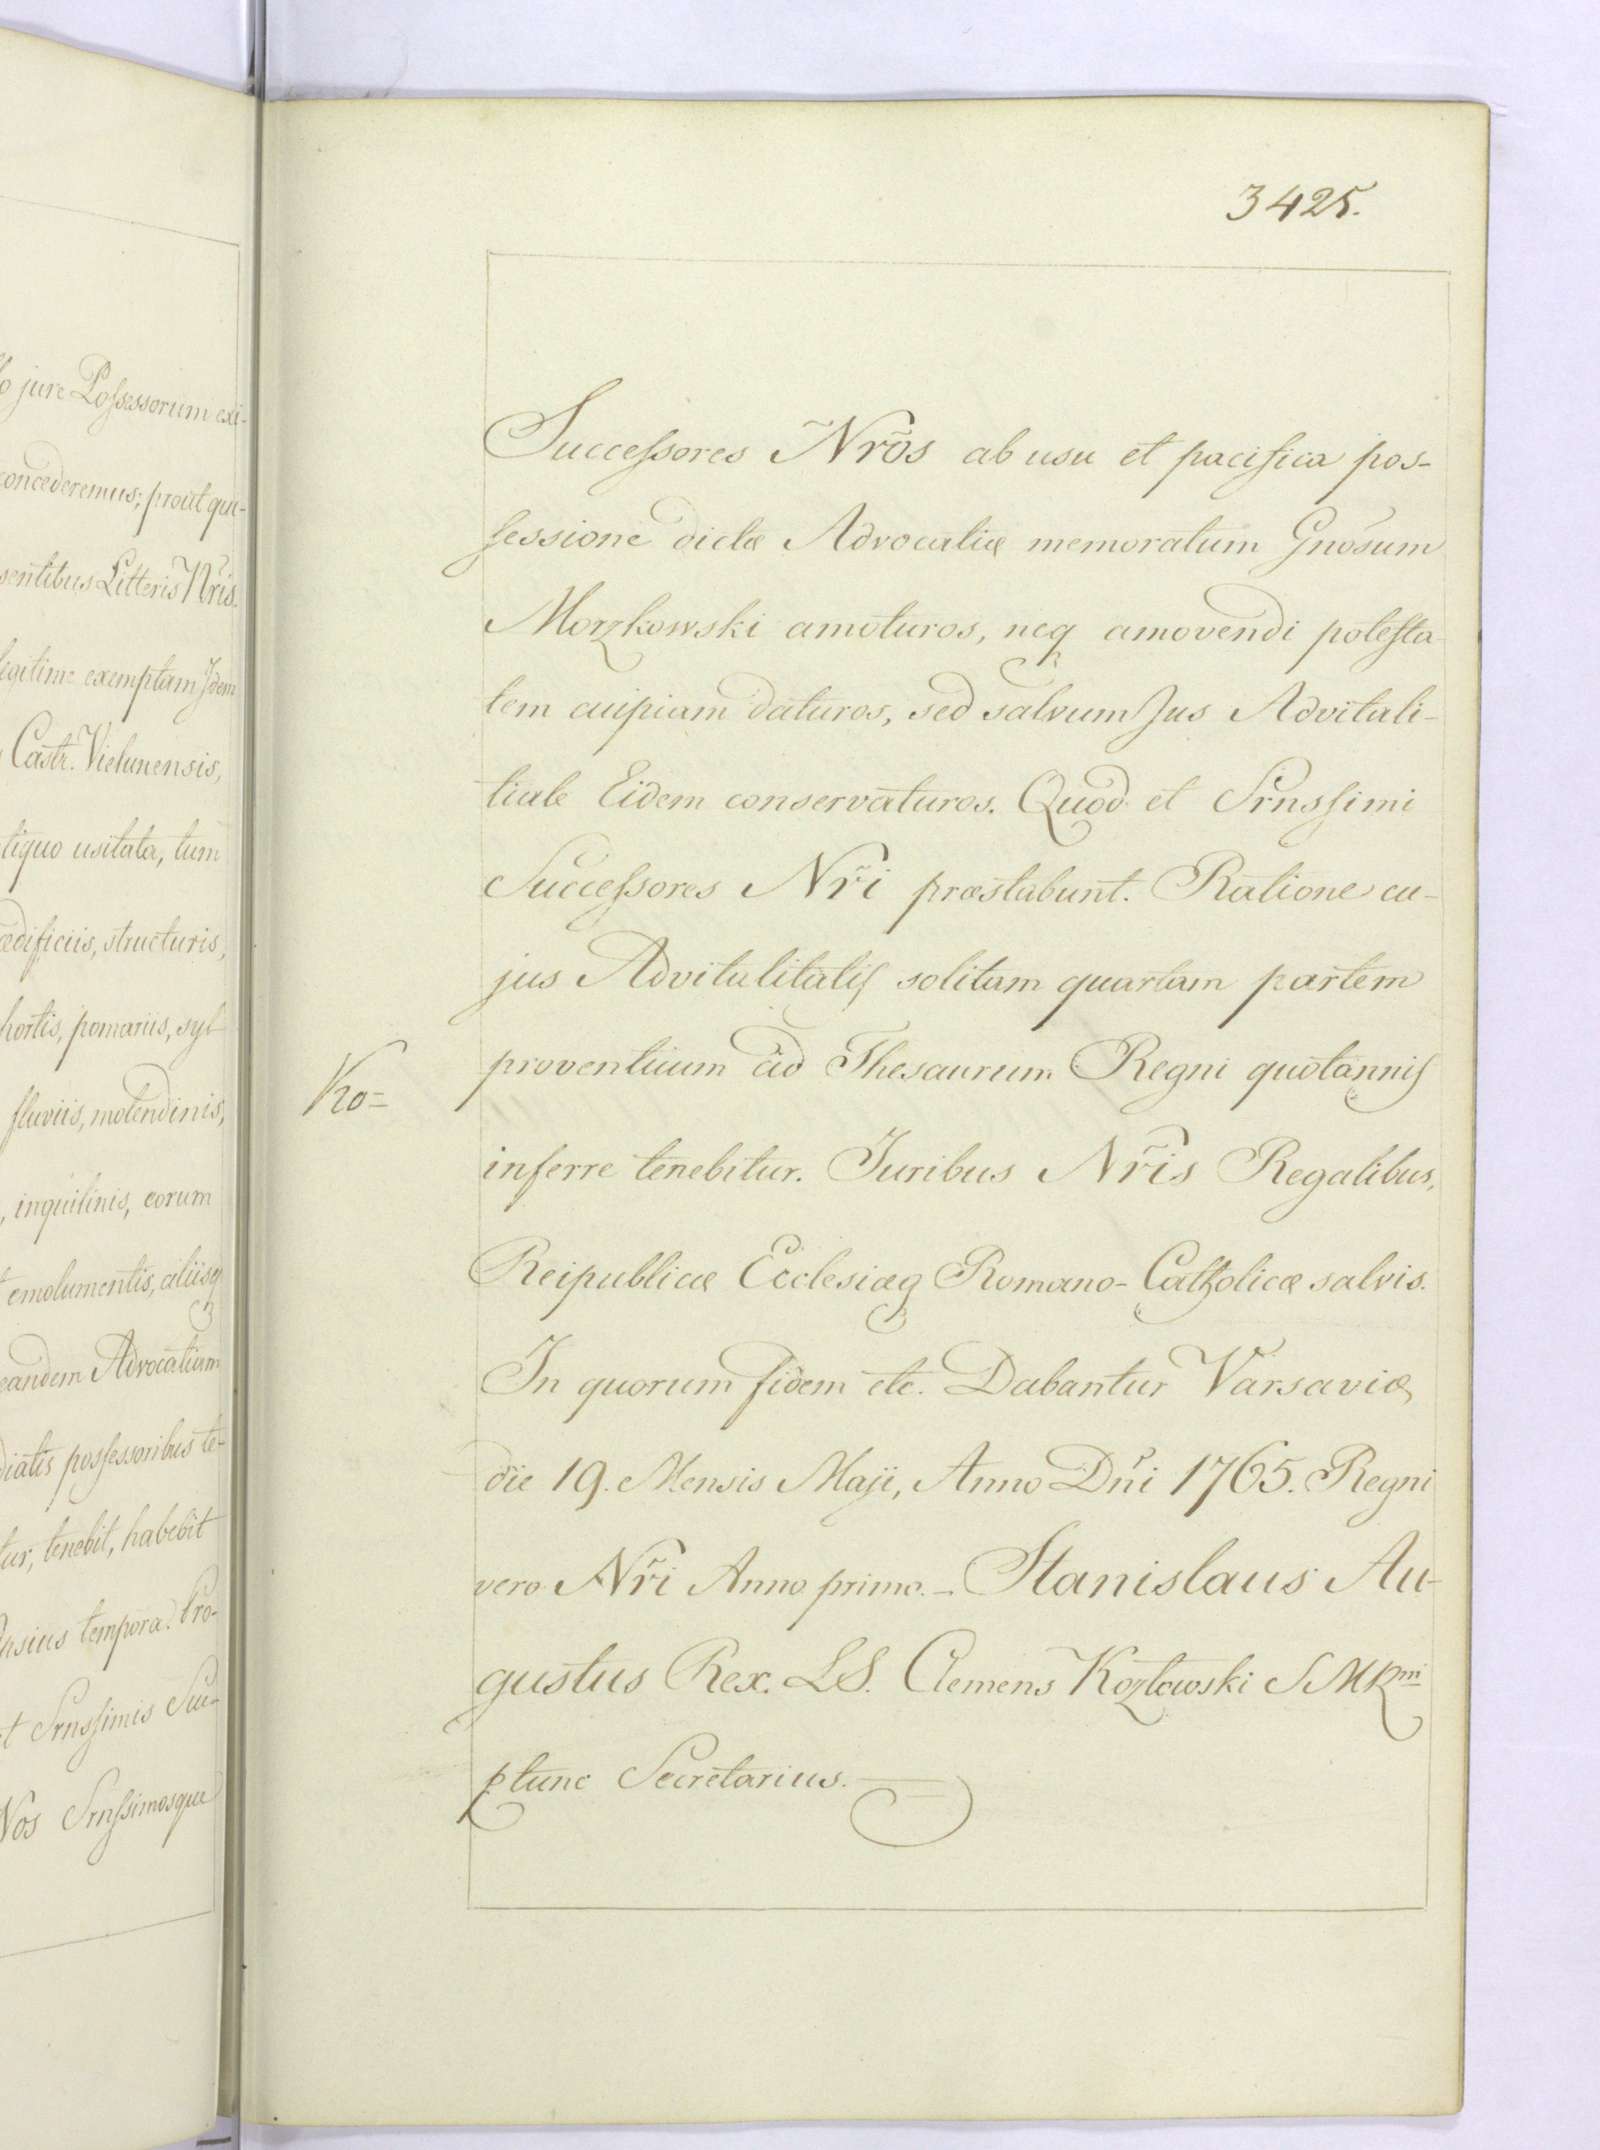 o jure Possessorum exi-
concederemus; prout qui-
sentibus Litteris Nris.
legitime exemptam Idem
Castr. Vielunensis,
tiquo usitata, tum
ædificiis, structuris,
hortis, pomariis, syl-
fluviis, molendinis,
, inquilinis, eorum
emolumentis, aliisq
eandem Advocatiam
diatis possessoribus te-
tur, tenebit, habebit
tempora. Pro-
t Srnssimis Suc-
Nos Srnssimosque
3425.
Successores Nrõs ab usu et pacifica pos-
sessione dictæ Advocatiæ memoratum Gnõsum
Morzkowski amoturos, neq amovendi potesta-
tem cuipiam daturos, sed salvum Jus Advitali-
tiale Eidem conservaturos. Quod et Srnssimi
Successores Nr̃i præstabunt. Ratione cu-
jus Advitalitatis solitam quartam partem
proventuum ad Thesaurum Regni quotannis
Ko=
inferre tenebitur. Juribus Nr̃is Regalibus,
Reipublicæ Ecclesiæq Romano-Catholicæ salvis.
In quorum fidem etc. Dabantur Varsaviæ
die 19. Mensis Maji, Anno Dñi 1765. Regni
vero Nr̃i Anno primo. – Stanislaus Au-
gustus Rex. LS. Clemens Kozłowski SMRmi
ptunc Secretarius.